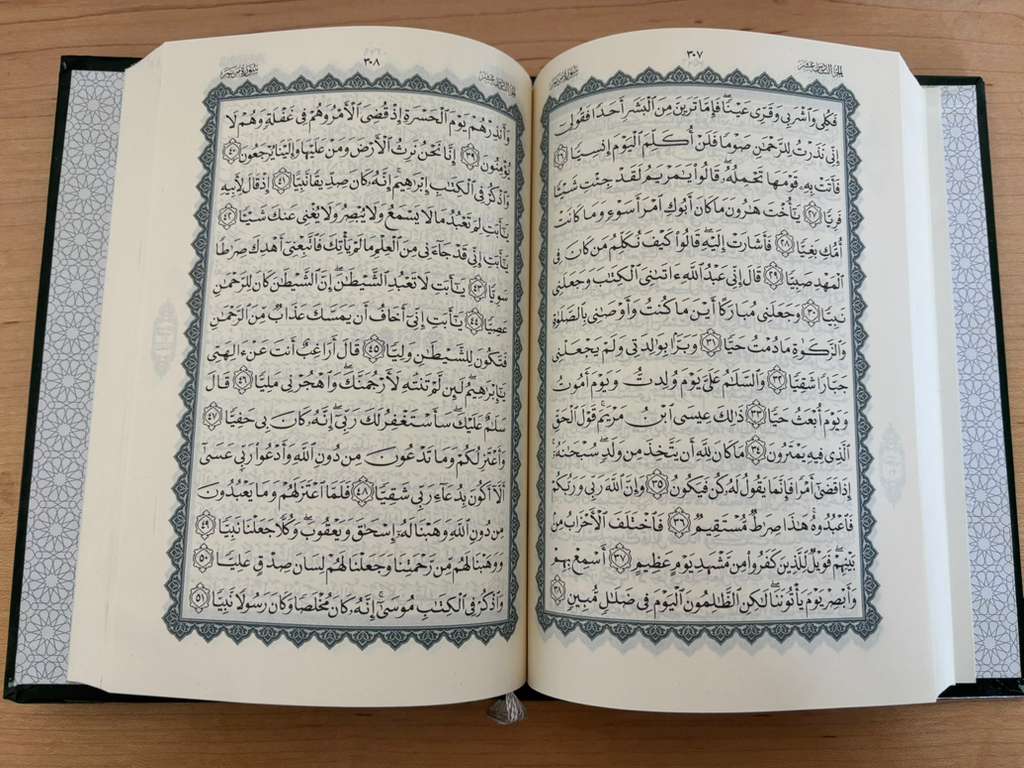 الجزء السادس عشر
٣٠٧
سورة مريم
فَكُلِي وَٱشۡرَبِي وَقَرِّي عَيۡنٗاۖ فَإِمَّا تَرَيِنَّ مِنَ ٱلۡبَشَرِ أَحَدٗا فَقُولِيٓ
إِنِّي نَذَرۡتُ لِلرَّحۡمَٰنِ صَوۡمٗا فَلَنۡ أُكَلِّمَ ٱلۡيَوۡمَ إِنسِيّٗا ٢٦
فَأَتَتۡ بِهِۦ قَوۡمَهَا تَحۡمِلُهُۥۖ قَالُواْ يَٰمَرۡيَمُ لَقَدۡ جِئۡتِ شَيۡـٔٗا
فَرِيّٗا ٢٧ يَٰٓأُخۡتَ هَٰرُونَ مَا كَانَ أَبُوكِ ٱمۡرَأَ سَوۡءٖ وَمَا كَانَتۡ
أُمُّكِ بَغِيّٗا ٢٨ فَأَشَارَتۡ إِلَيۡهِۖ قَالُواْ كَيۡفَ نُكَلِّمُ مَن كَانَ فِي
ٱلۡمَهۡدِ صَبِيّٗا ٢٩ قَالَ إِنِّي عَبۡدُ ٱللَّهِ ءَاتَىٰنِيَ ٱلۡكِتَٰبَ وَجَعَلَنِي
نَبِيّٗا ٣٠ وَجَعَلَنِي مُبَارَكًا أَيۡنَ مَا كُنتُ وَأَوۡصَٰنِي بِٱلصَّلَوٰةِ
وَٱلزَّكَوٰةِ مَا دُمۡتُ حَيّٗا ٣١ وَبَرَّۢا بِوَٰلِدَتِي وَلَمۡ يَجۡعَلۡنِي
جَبَّارٗا شَقِيّٗا ٣٢ وَٱلسَّلَٰمُ عَلَيَّ يَوۡمَ وُلِدتُّ وَيَوۡمَ أَمُوتُ
وَيَوۡمَ أُبۡعَثُ حَيّٗا ٣٣ ذَٰلِكَ عِيسَى ٱبۡنُ مَرۡيَمَۖ قَوۡلَ ٱلۡحَقِّ
ٱلَّذِي فِيهِ يَمۡتَرُونَ ٣٤ مَا كَانَ لِلَّهِ أَن يَتَّخِذَ مِن وَلَدٖۖ سُبۡحَٰنَهُۥٓۚ
إِذَا قَضَىٰٓ أَمۡرٗا فَإِنَّمَا يَقُولُ لَهُۥ كُن فَيَكُونُ ٣٥ وَإِنَّ ٱللَّهَ رَبِّي وَرَبُّكُمۡ
فَٱعۡبُدُوهُۚ هَٰذَا صِرَٰطٞ مُّسۡتَقِيمٞ ٣٦ فَٱخۡتَلَفَ ٱلۡأَحۡزَابُ مِنۢ
بَيۡنِهِمۡۖ فَوَيۡلٞ لِّلَّذِينَ كَفَرُواْ مِن مَّشۡهَدِ يَوۡمٍ عَظِيمٍ ٣٧ أَسۡمِعۡ بِهِمۡ
وَأَبۡصِرۡ يَوۡمَ يَأۡتُونَنَا لَٰكِنِ ٱلظَّٰلِمُونَ ٱلۡيَوۡمَ فِي ضَلَٰلٖ مُّبِينٖ ٣٨
الجزء السادس عشر
٣٠٨
سورة مريم
وَأَنذِرۡهُمۡ يَوۡمَ ٱلۡحَسۡرَةِ إِذۡ قُضِيَ ٱلۡأَمۡرُ وَهُمۡ فِي غَفۡلَةٖ وَهُمۡ لَا
يُؤۡمِنُونَ ٣٩ إِنَّا نَحۡنُ نَرِثُ ٱلۡأَرۡضَ وَمَنۡ عَلَيۡهَا وَإِلَيۡنَا يُرۡجَعُونَ ٤٠
وَٱذۡكُرۡ فِي ٱلۡكِتَٰبِ إِبۡرَٰهِيمَۚ إِنَّهُۥ كَانَ صِدِّيقٗا نَّبِيًّا ٤١ إِذۡ قَالَ لِأَبِيهِ
يَٰٓأَبَتِ لِمَ تَعۡبُدُ مَا لَا يَسۡمَعُ وَلَا يُبۡصِرُ وَلَا يُغۡنِي عَنكَ شَيۡـٔٗا ٤٢
يَٰٓأَبَتِ إِنِّي قَدۡ جَآءَنِي مِنَ ٱلۡعِلۡمِ مَا لَمۡ يَأۡتِكَ فَٱتَّبِعۡنِيٓ أَهۡدِكَ صِرَٰطٗا
سَوِيّٗا ٤٣ يَٰٓأَبَتِ لَا تَعۡبُدِ ٱلشَّيۡطَٰنَۖ إِنَّ ٱلشَّيۡطَٰنَ كَانَ لِلرَّحۡمَٰنِ
عَصِيّٗا ٤٤ يَٰٓأَبَتِ إِنِّيٓ أَخَافُ أَن يَمَسَّكَ عَذَابٞ مِّنَ ٱلرَّحۡمَٰنِ
فَتَكُونَ لِلشَّيۡطَٰنِ وَلِيّٗا ٤٥ قَالَ أَرَاغِبٌ أَنتَ عَنۡ ءَالِهَتِي
يَٰٓإِبۡرَٰهِيمُۖ لَئِن لَّمۡ تَنتَهِ لَأَرۡجُمَنَّكَۖ وَٱهۡجُرۡنِي مَلِيّٗا ٤٦ قَالَ
سَلَٰمٌ عَلَيۡكَۖ سَأَسۡتَغۡفِرُ لَكَ رَبِّيٓۖ إِنَّهُۥ كَانَ بِي حَفِيّٗا ٤٧
وَأَعۡتَزِلُكُمۡ وَمَا تَدۡعُونَ مِن دُونِ ٱللَّهِ وَأَدۡعُواْ رَبِّي عَسَىٰٓ
أَلَّآ أَكُونَ بِدُعَآءِ رَبِّي شَقِيّٗا ٤٨ فَلَمَّا ٱعۡتَزَلَهُمۡ وَمَا يَعۡبُدُونَ
مِن دُونِ ٱللَّهِ وَهَبۡنَا لَهُۥٓ إِسۡحَٰقَ وَيَعۡقُوبَۖ وَكُلّٗا جَعَلۡنَا نَبِيّٗا ٤٩
وَوَهَبۡنَا لَهُم مِّن رَّحۡمَتِنَا وَجَعَلۡنَا لَهُمۡ لِسَانَ صِدۡقٍ عَلِيّٗا ٥٠
وَٱذۡكُرۡ فِي ٱلۡكِتَٰبِ مُوسَىٰٓۚ إِنَّهُۥ كَانَ مُخۡلَصٗا وَكَانَ رَسُولٗا نَّبِيّٗا ٥١